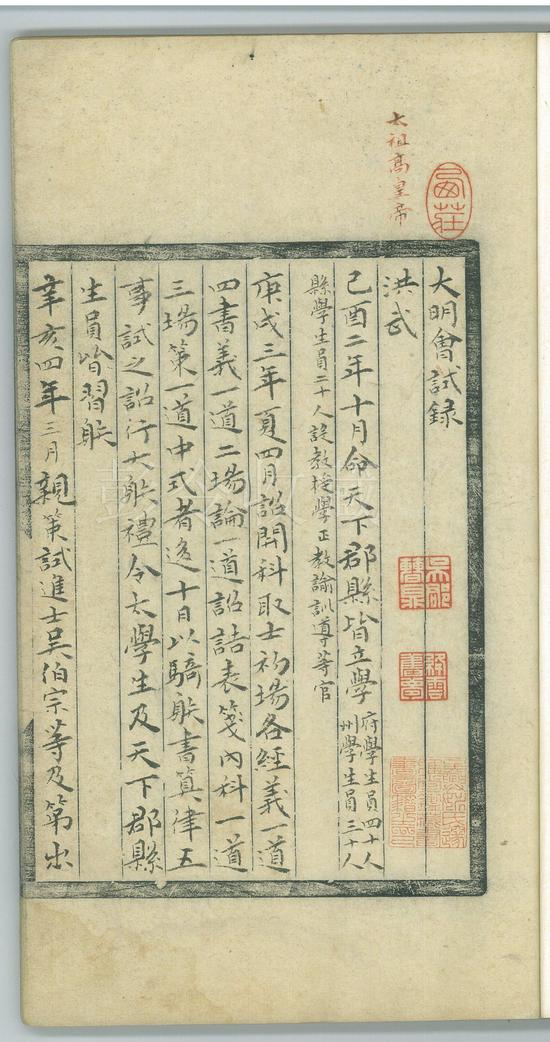 太祖高皇帝
大明會試錄
洪武
己酉二年十月命天下郡縣皆立學府學生員四十人州學生員三十人
縣學生員二十人設教授學正教諭訓導等官
庚戌三年夏四月詔開科取士初場各經義一道
四書義一道二場論一道詔誥表箋內科一道
三場策一道中式者後十日以騎射書算律五
事試之詔行大射禮令太學生及天下郡縣
生員皆習射
辛亥四年三月親策試進士吳伯宗等及第出